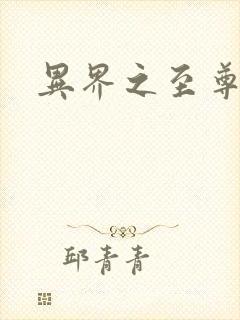 異界之至尊
邱青青